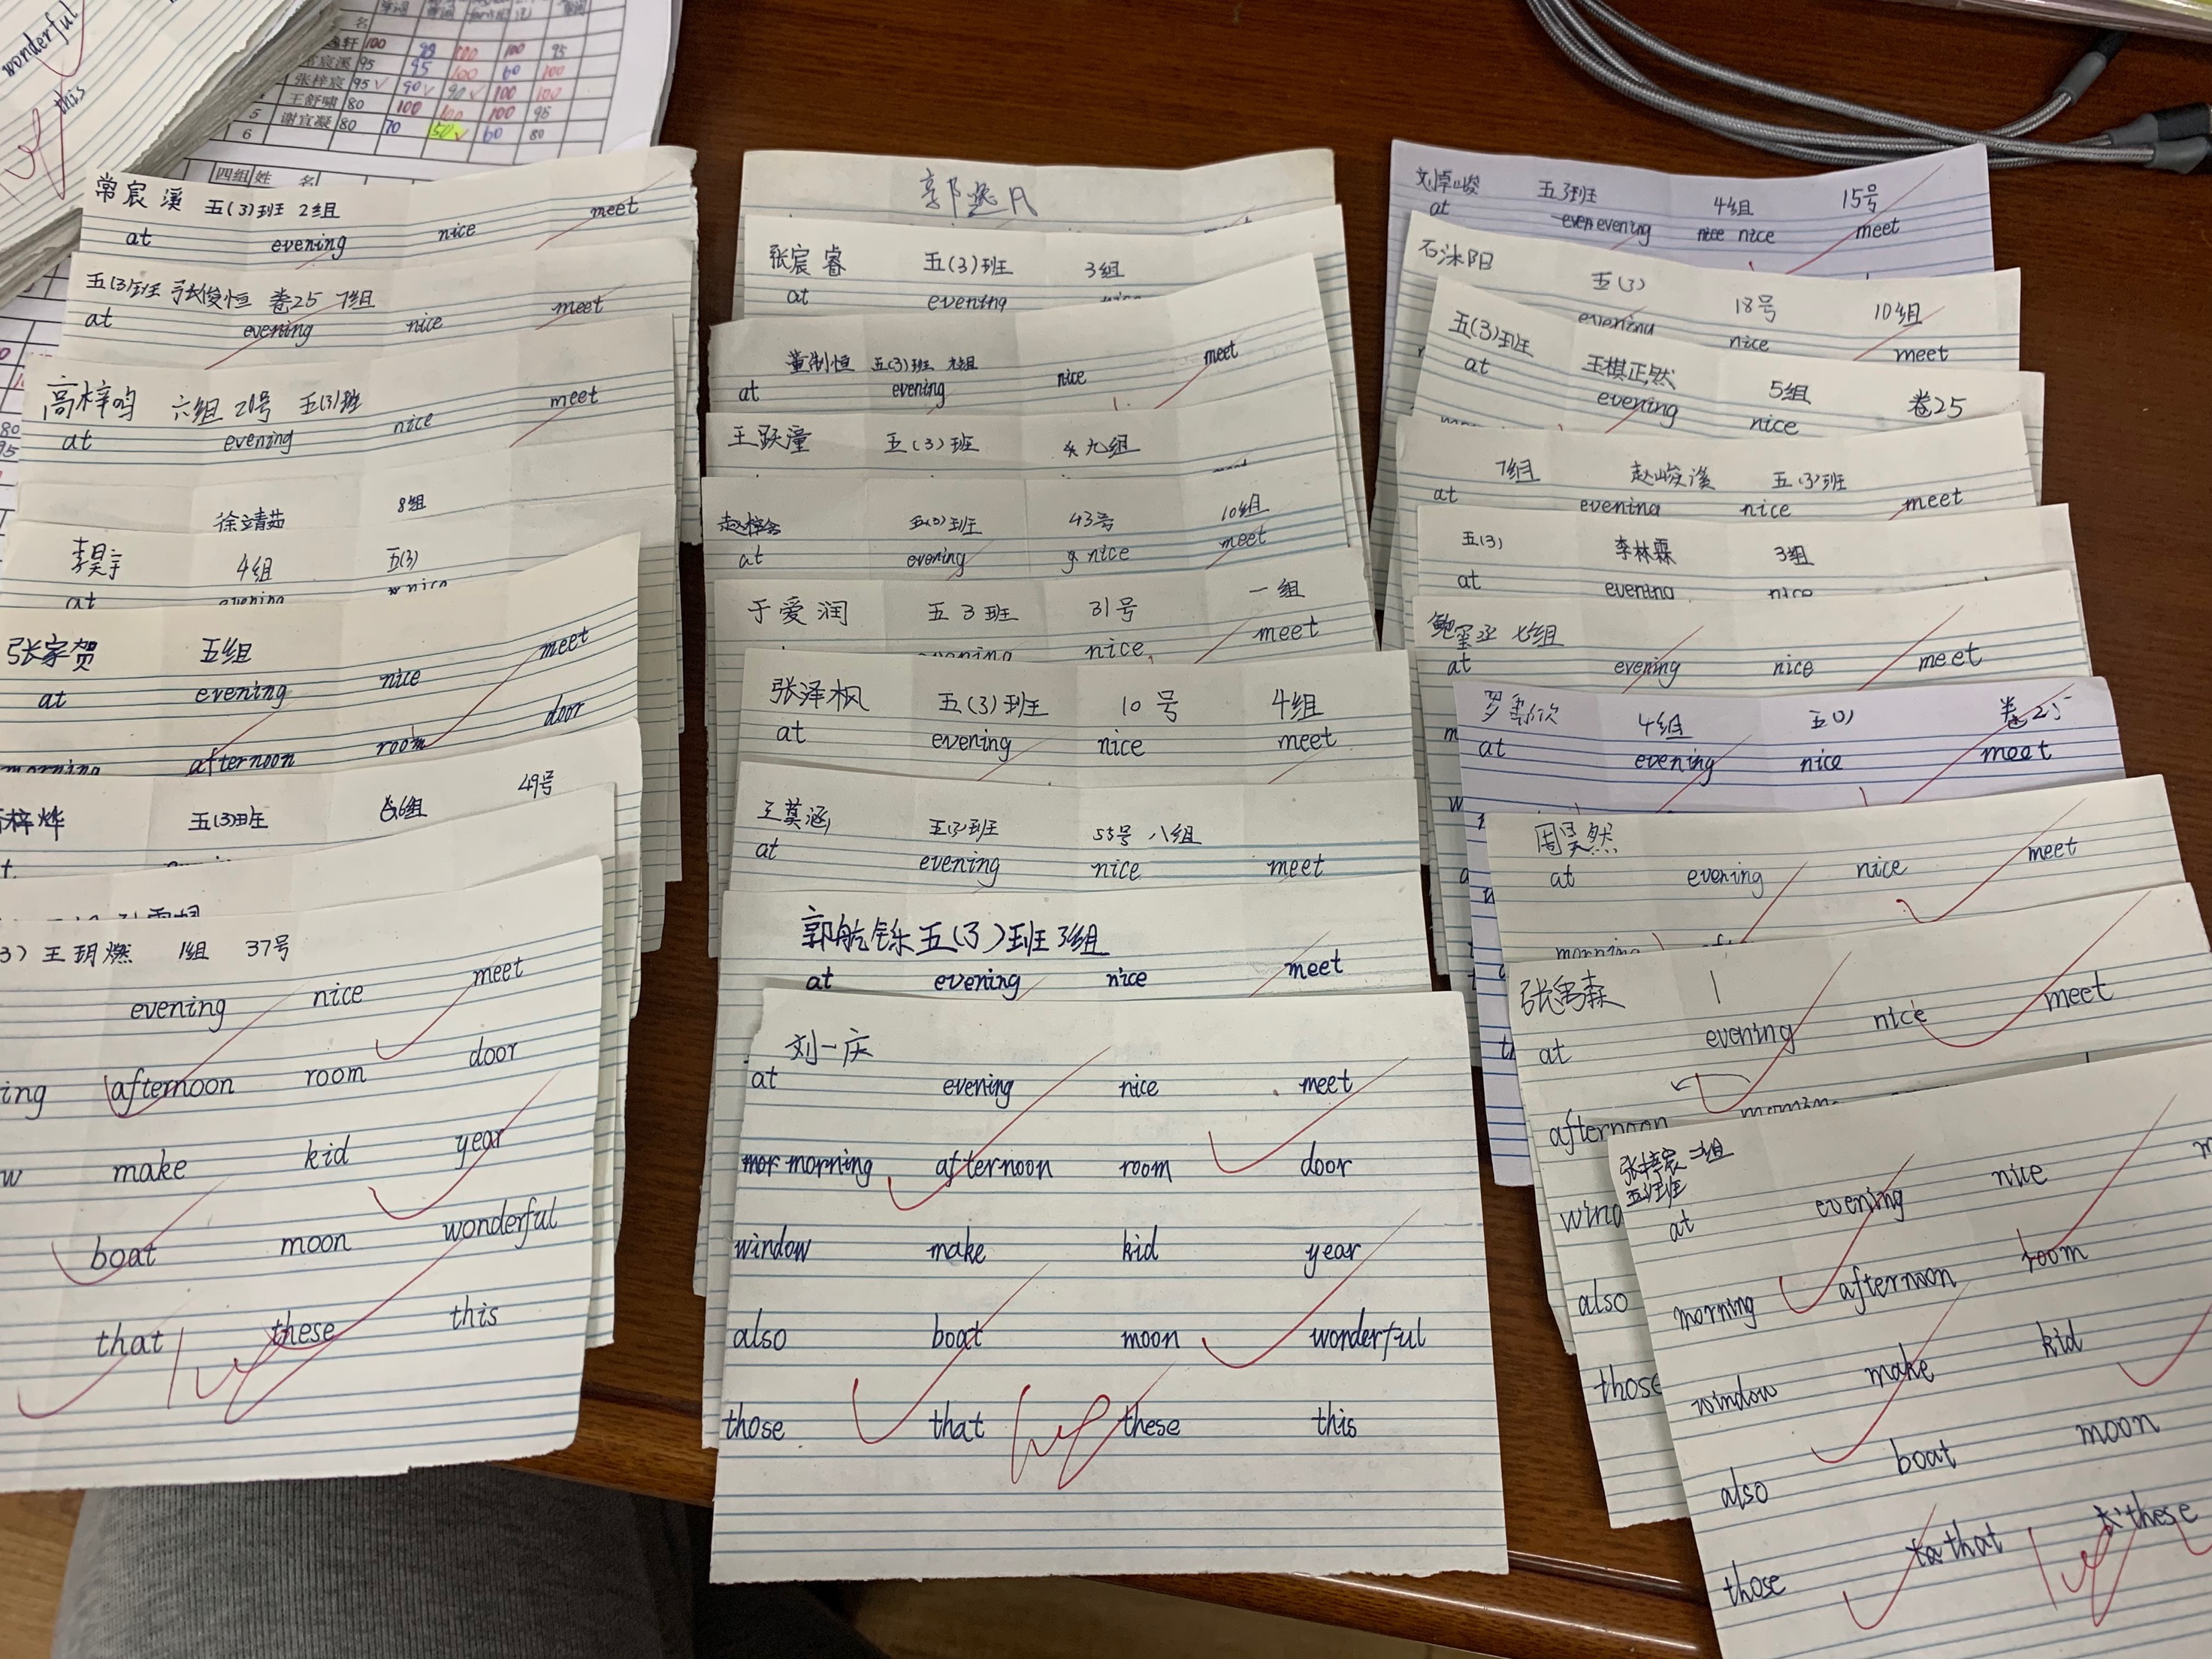 wonderful
this
轩 100 98 100 100 95
宸溪 95 95 100 60 100
张梓宸 95 90 90 100 100
王舒啸 80 100 100 100 95
5 谢宜凝 80 70 50 60 80
6
四组 姓 名
常宸溪 五(3)班 2组
at evening nice meet
五(3)班 张俊恒 卷25 7组
at evening nice meet
高梓鸣 六组 21号 五(3)班
at evening nice meet
徐靖茹 8组
李昊宇 4组 五(3)
at evening nice
张家贺 五组
at evening nice meet
morning afternoon room door
梓烨 五(3)班 6组 49号
3) 王玥燃 1组 37号
evening nice meet
ing afternoon room door
w make kid year
boat moon wonderful
that these this
郭逸凡
张宸睿 五(3)班 3组
at evening nice
董制恒 五(3)班
at evening nice meet
王跃潼 五(3)班 九组
五(3)班 43号 10组
at evening nice meet
于爱润 五3班 31号 一组
evening nice meet
张泽枫 五(3)班 10号 4组
at evening nice meet
王莫涵 五(3)班 55号 八组
at evening nice meet
郭航铄 五(3)班 3组
at evening nice meet
刘一庆
at evening nice meet
mor morning afternoon room door
window make kid year
also boat moon wonderful
those that these this
刘卓峻 五3班 4组 15号
at even evening nice nice meet
石沐阳 五(3) 18号 10组
evening nice meet
五(3)班 王棋正然 5组 卷25
at evening nice
7组 赵峻溪 五(3)班
at evening nice meet
五(3) 李林霖 3组
at evening nice
七组
at evening nice meet
4组 五(3) 卷25
at evening nice meet
周昊然
at evening nice meet
morning
张禹森
at evening nice meet
afternoon morning
wind
also
those
张梓宸 二组
五(3)班
at evening nice m
morning afternoon room
window make kid
also boat moon
those ta that t these